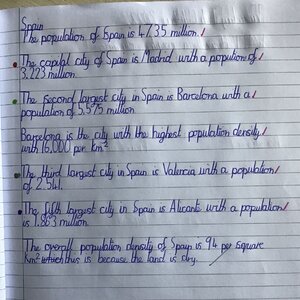 Spain
The population of Spain is 47.35 million.
The capital city of Spain is Madrid with a population of
3.223 million.
The second largest city in Spain is Barcelona with a
population of 5.575 million
Barcelona is the city with the highest population density
with 16,000 per km²
The third largest city in Spain is Valencia with a population
of
The fifth largest city in Spain is Alicante with a population
is 1.863 million
The overall population density of Spain is 94 per square
km² this is because the land is dry.